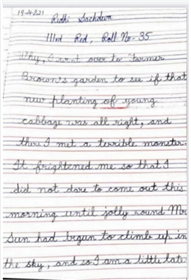 19-4-2021
Ridhi Sachdeva
IIIrd Red, Roll No - 35
Why, I went over to Farmer
Brown's garden to see if that
new planting of young
cabbage was all right, and
there I met a terrible monster.
It frightened me so that I
did not dare to come out this
morning until jolly round Mr
Sun had begun to climb up in
the sky, and so I am a little late